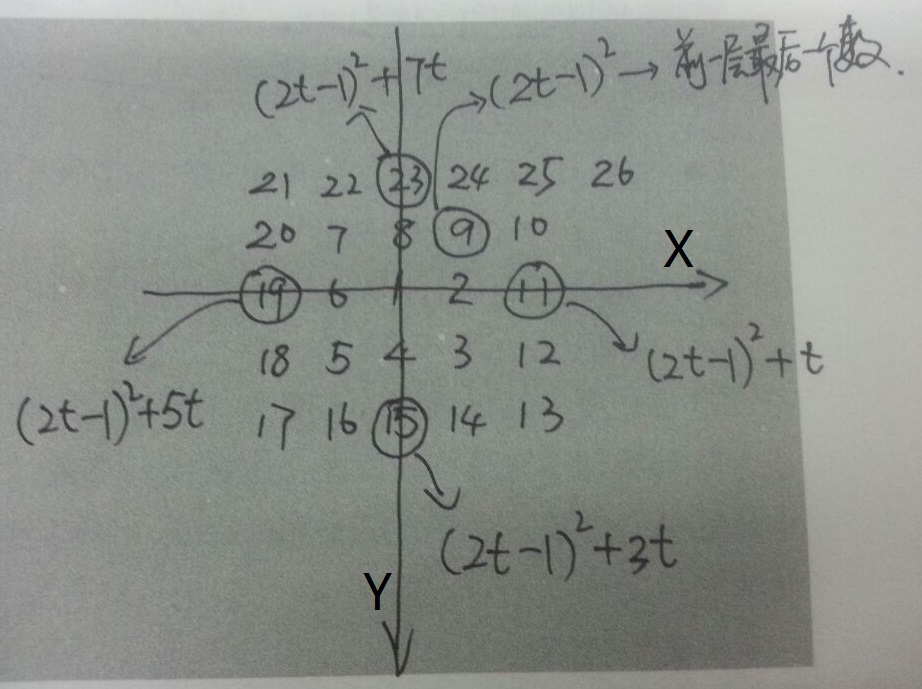 (2t-1)²+7t (2t-1)² → 前一层最后一个数.
21 22 23 24 25 26
20 7 8 9 10
X
19 6 1 2 11
18 5 4 3 12
(2t-1)²+t
(2t-1)²+5t
17 16 15 14 13
(2t-1)²+3t
Y